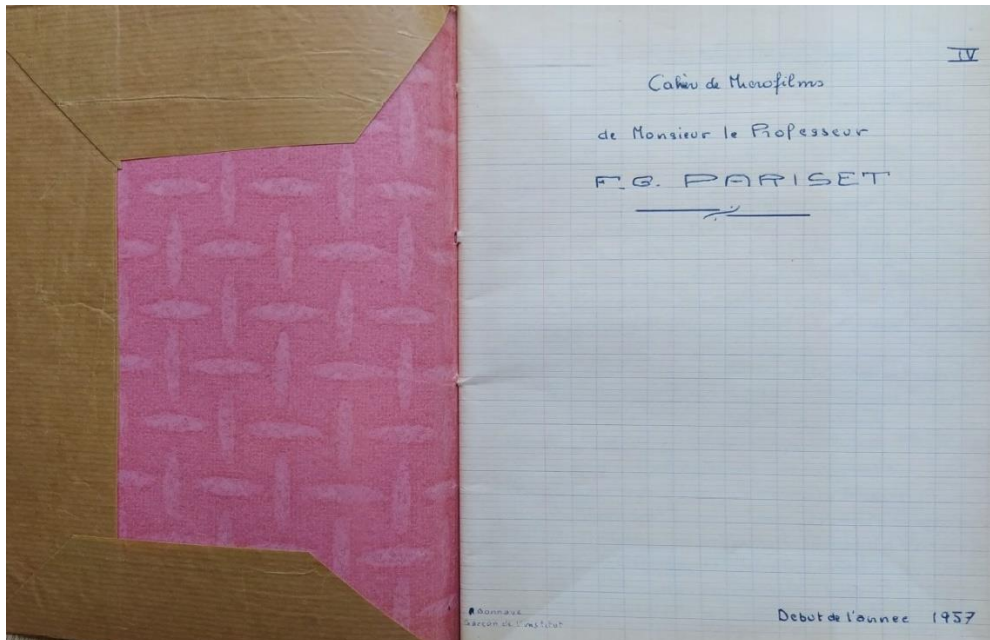 IV
Cahier de Microfilms
de Monsieur le Professeur
F.G. PARISET
Garçon de l'institut
Debut de l'annee 1957